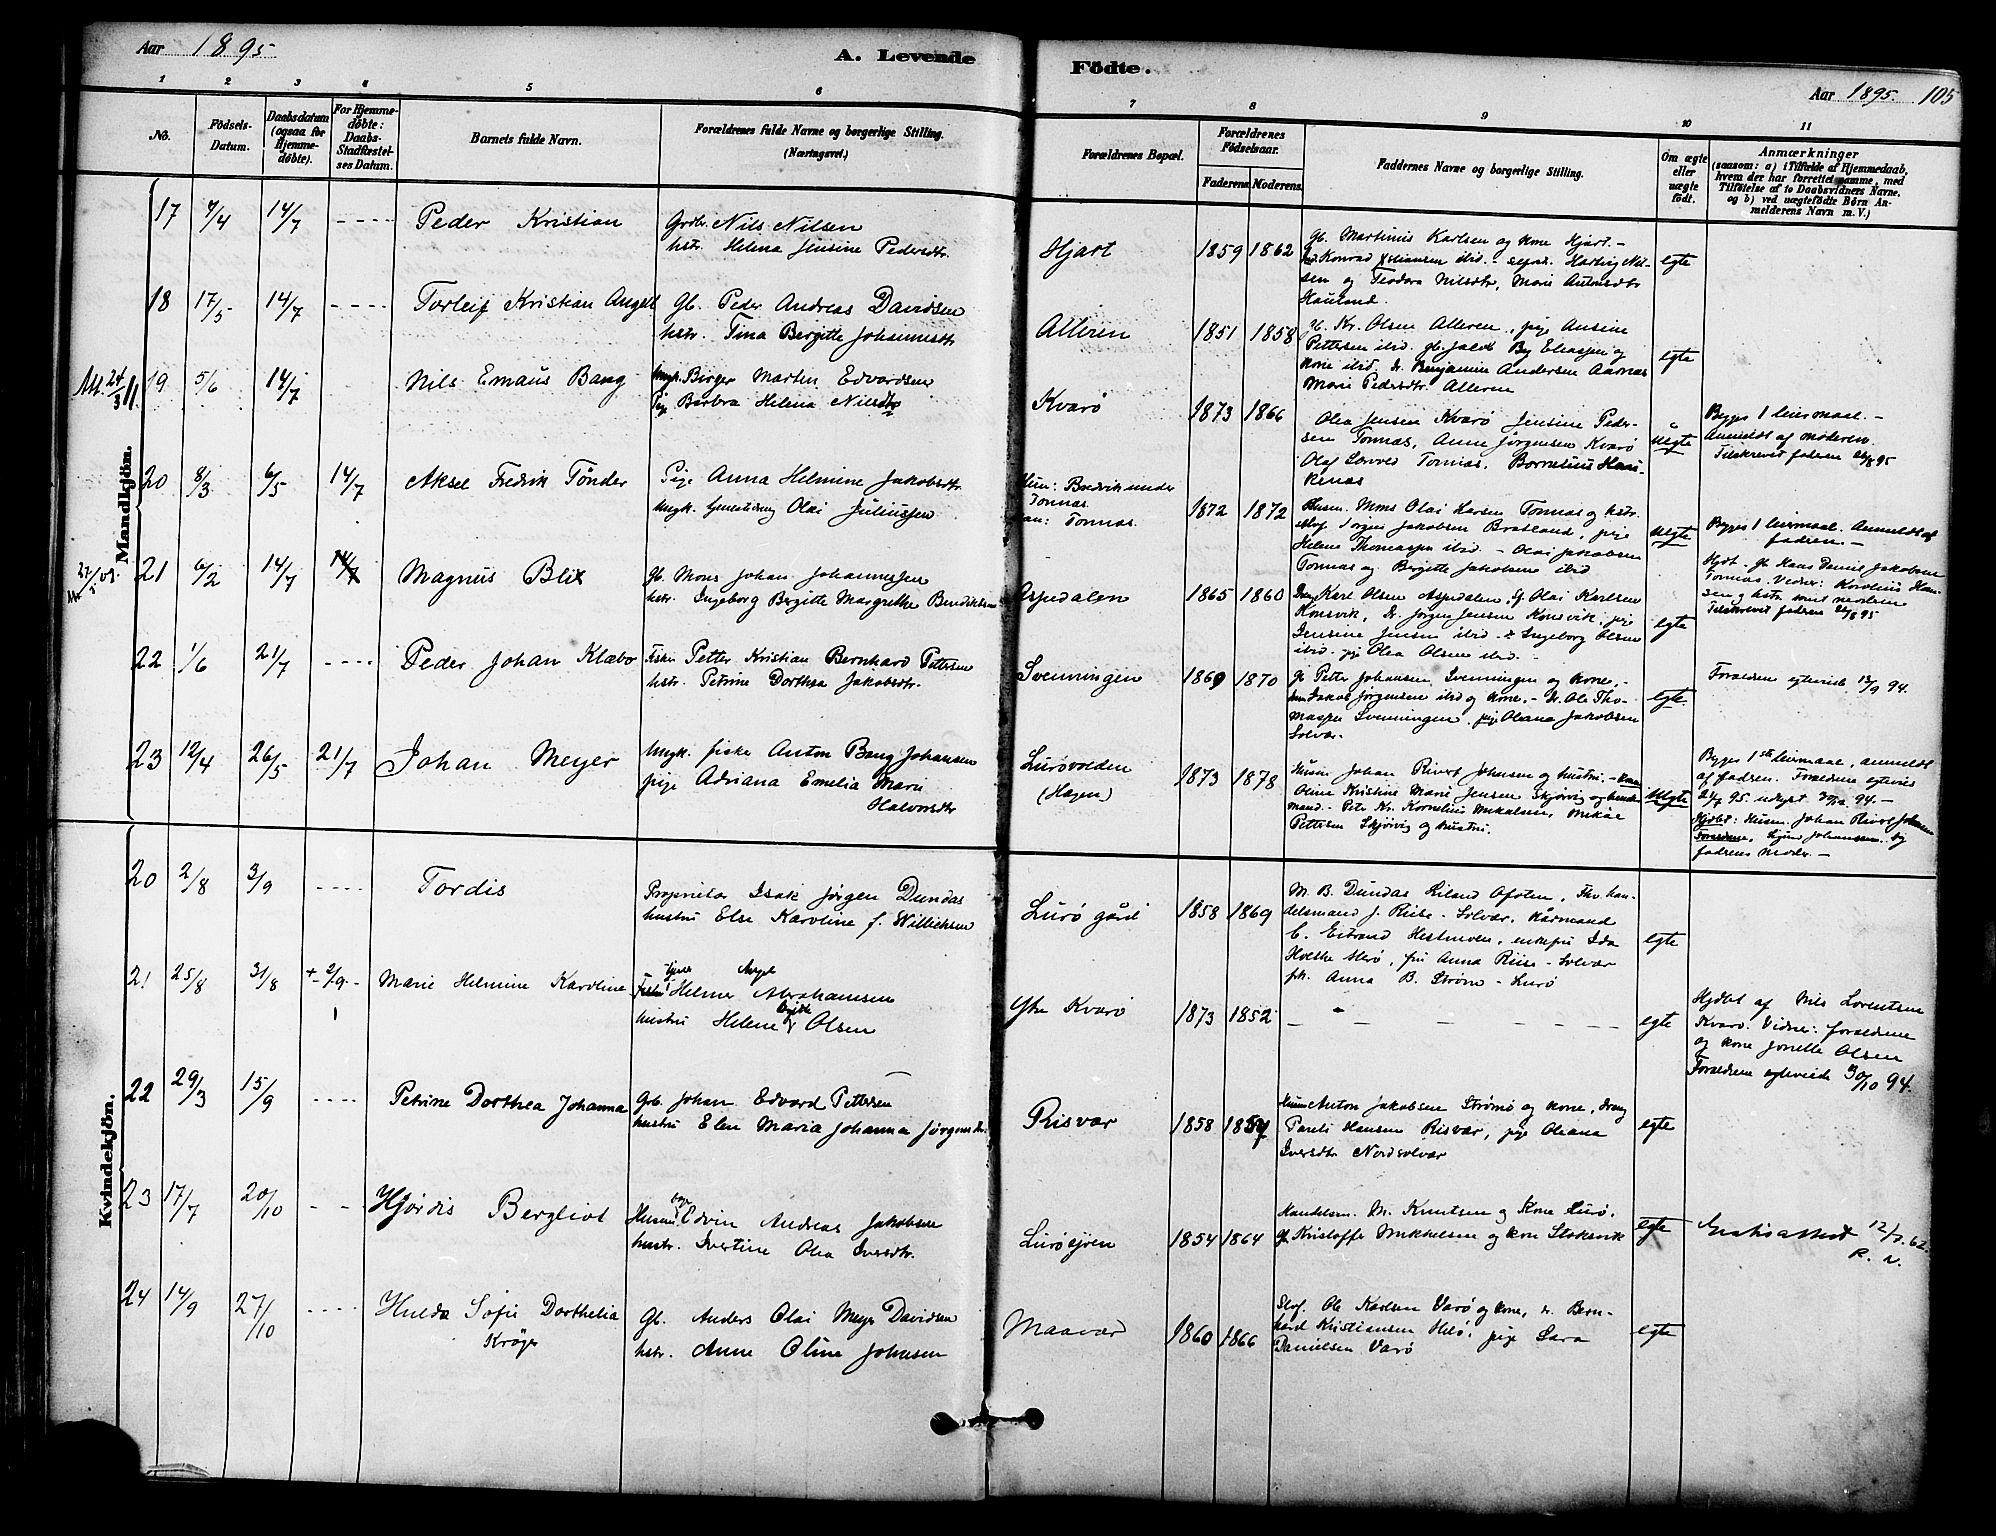 Aar 1895
A. Levende
Fødte.
Aar 1895. 105
1 2 3 4 5 6
7 8 9 10 11
No.
Fødsels-
Datum.
Daabsdatum
(ogsaa for
Hjemme-
døbte).
For Hjemme-
døbte:
Daabs-
Stadfæstel-
ses Datum.
Barnets fulde Navn.
Forældrenes fulde Navne og borgerlige Stilling.
(Næringsvei.)
Forældrenes Bopæl.
Forældrenes
Fødselsaar.
Faderens. Moderens.
Faddernes Navne og borgerlige Stilling.
Om ægte
eller
uægte
født.
Anmærkninger
(saasom: a) i Tilfælde af Hjemmedaab,
hvem der har forrettet samme, med
Tilføielse af to Daabsvidners Navne.
og b) ved uægtefødte Børn An-
melderens Navn m. V.)
Mandkjøn.
17 7/4 14/7 ---- Peder Kristian
Grdbr. Nils Nilsen
hstr. Helena Jensine Pedersdtr.
Hjart 1859 1862
gb. Martinus Karlsen og kone Hjart. -
Konrad ibid. Hartvig Nil-
sen og Teodora Nilsdtr, Marie
egte
18 17/5 14/7 ---- Torleif Kristian Angell
Gb. Peder Andreas Davidsen
hstr. Tina Bergitte Johannesdtr
Alleren 1851 1858
gb. Kr. Olsen Alleren, pige Ansine
Pettersen ibid. gb. Jakob By Eliassen og
kone ibid. Benjamin Andersen Aarnæs
Marie Pedersdtr. Alleren
egte
19 5/6 14/7 Nils Emaus Bang
Ungk. Birger Martin Edvardsen
Pige Barbra Helena Nilsdtr
Kvarø 1873 1866
Olea Jensen Kvarø Jensine Peder-
sen Tonnæs, Anne Jørgensen Kvarø
Olaf Tonnæs, Bornelius Hans-
uegte
Begges 1 leiermaal. -
Anmeldt af moderen.
Tilskrevet fadren 26/8 95
20 8/3 6/5 14/7 Aksel Fredrik Tønder
Pige Anna Helmine Jakobsdtr.
Ungk. Olai Juliussen
Hun: Bredvik under
Tonnæs.
Han: Tonnæs.
1872 1872
Husm. Mons Olai Larsen Tonnæs og hstr.
Jørgen Jakobsen Bratland, pige
Helene Thomassen ibid. - Olai Jakobsen
Tonnæs og Bergitte Jakobsen ibid
uegte
Begges 1 leiermaal. Anmeldt af
fadren. -
21 6/2 14/7 14/7 Magnus Blix
Gb. Mons Johan Johannessen
hstr. Ingeborg Bergitte Margrethe Bendiktsen
Aspdalen 1865 1860
Karl Olsen Aspdalen, G. Olai Karlsen
Konsvik, Jørgen Jensen Konsvik, pige
Jensine Jensen ibid. Ingeborg Olsen
ibid. pige Olea Olsen ibid. -
egte
Hjdt. gb. Hans Daniel Jakobsen
Tonnæs. Vidner: Kornelius Han-
sen og hstr. samt moderen
Tilskrevet fadren 26/8 95
22 1/6 21/7 ---- Peder Johan Klæbo
Fisker Petter Kristian Bernhard Pettersen
hstr. Petrine Dorthea Jakobsdtr.
Svenningen 1869 1870
gb. Petter Johansen, Svenningen og kone, -
Jakob Jørgensen ibid og kone. - Ole Tho-
massen Svenningen, pige Oleana Jakobsen
Solvær.
egte
Forældrene egteviet 13/9 94.
23 12/4 26/5 21/7 Johan Meyer
Ungk. fisker Anton Bang Johansen
pige Adriana Emelia Marie
Halvorsdtr
Lurøvolden
(Hagen)
1873 1878
Husm. Johan Rivert Johnsen og hustru. -
Oline Kristine Marie Jensen Skjørvig
mand. - Peter Kr. Kornelius Mikalsen, Mikal
Pettersen Skjørvig og hustru.
uegte
Begges 1ste leiermaal, anmeldt
af fadren. Forældrene egteviet
Hjdbt: Husm. Johan Rivert Johnsen
fadrens moder. -
Kvindekjøn.
20 2/8 3/9 ---- Tordis
Proprietær Isak Jørgen Dundas
hustru Else Karoline f. Willichsen
Lurø gård 1858 1869
M. B. Dundas Riland Ofoten, Fhv. han-
delsmand J. Riise - Solvær, kårmand
C. Hestmoen, enkefru Ida
fru Anna Riise - Solvær
frk. Anna B. Strøm - Lurø
egte
21 25/8 31/8 + 2/9 - Marie Helmine Karoline
Helmer Angel Abrahamsen
hustru Helene Olsen
Ytre Kvarø 1873 1852
egte
Hjdbt af Nils Lorentsen
Kvarø. Vidner: forældrene
og kone Jonette Olsen
Forældrene egteviede 30/10 94.
22 29/3 15/9 ---- Petrine Dorthea Johanna
Grb. Johan Edvard Pettersen
hustru Elen Maria Johanna Jørgensdtr.
Risvær 1858 1857
Husm Anton Jakobsen Strømø og kone, dreng
Pareli Hansen Risvær, pige Oleana
Iversdtr Nordsolvær
egte
23 17/7 20/10 - - Hjørdis Bergliot
Husm. Edvin Andreas Jakobsen
hustr. Ivertine Olea Iversdtr.
Lurøsjøen 1854 1864
Handelsm. M. Knutsen og Kone Lurø.
gb. Kristoffer Mikkelsen og kone Stoksvik
egte
24 14/9 27/10 ---- Hulda Sofie Dorthelia
Krøger
Gb. Anders Olai Meyer Davidsen
hstr. Anne Oline Johnsen
Maavær 1860 1866
Ole Karlsen Varø og kone, Bern-
hard Kristiansen pige Sara
Danielsen Varø
egte